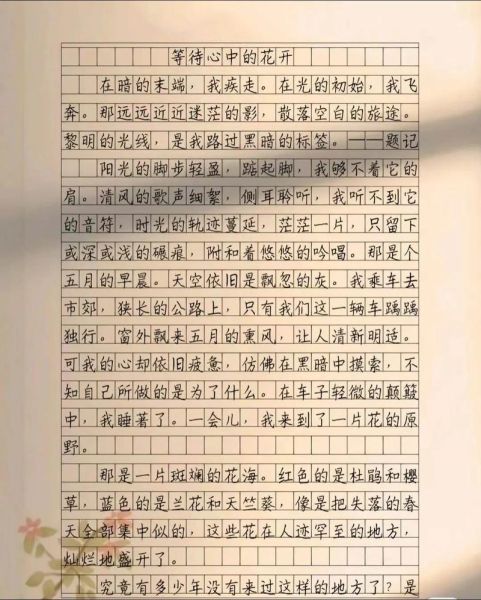 等待心中的花开
在暗的末端，我疾走。在光的初始，我飞
奔。那远远近近迷茫的影，散落空白的旅途。
黎明的光线，是我路过黑暗的标签。——题记
阳光的脚步轻盈，踮起脚，我够不着它的
肩。清风的歌声细絮，侧耳聆听，我听不到它
的音符，时光的轨迹蔓延，茫茫一片，只留下
或深或浅的碾痕，附和着悠悠的吟唱。那是个
五月的早晨。天空依旧是飘忽的灰。我乘车去
市郊，狭长的公路上，只有我们这一辆车踽踽
独行。窗外飘来五月的熏风，让人清新明适。
可我的心却依旧疲惫，仿佛在黑暗中摸索，不
知自己所做的是为了什么。在车子轻微的颠簸
中，我睡着了。一会儿，我来到了一片花的原
野。
那是一片斑斓的花海。红色的是杜鹃和樱
草，蓝色的是兰花和天竺葵，像是把失落的春
天全部集中似的，这些花在人迹罕至的地方，
灿烂地盛开了。
究竟有多少年没有来过这样的地方了？是